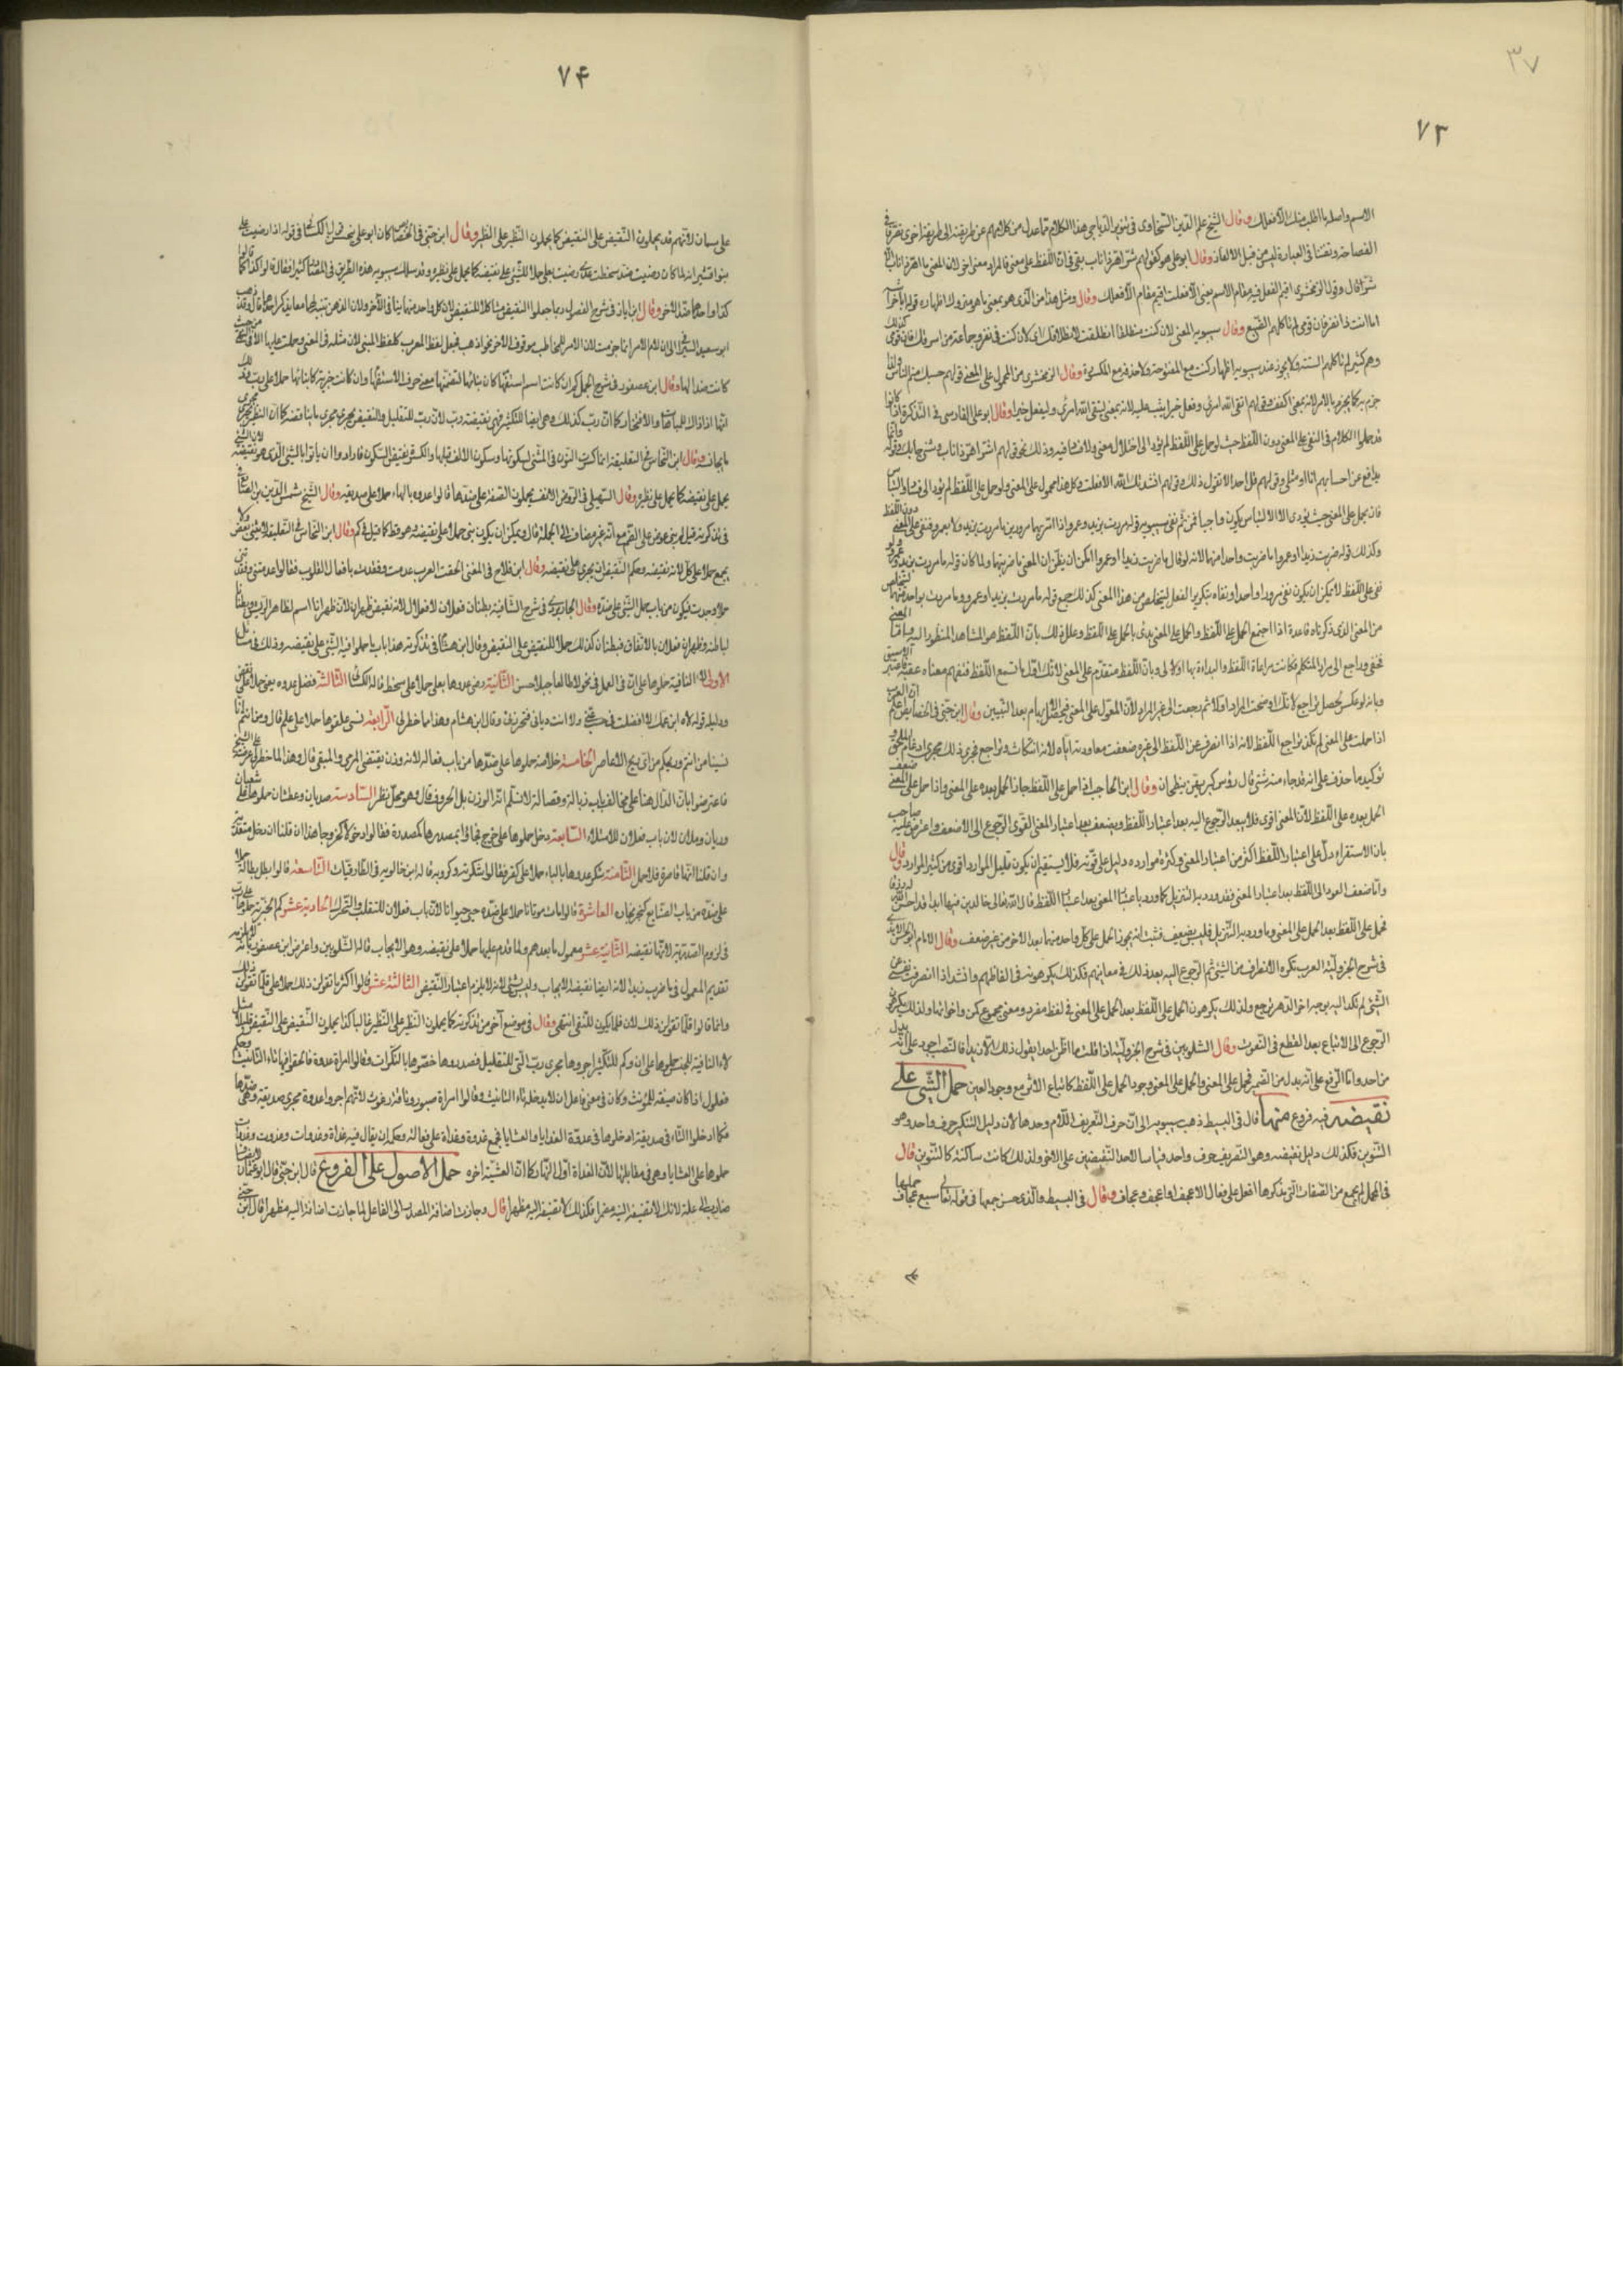 ٣٧
٧٣
الاسم واصله ما اطلب منك الا فعلك وقال الشيخ علم الدين السخاوى فى تنوير الدياجى هذا الكلام مما عدل من كلامهم عن طريقته الى طريقة اخرى تصرفا فى
الفصاحة وتفننا فى العبارة ليس من قبل الالغاز وقال ابو على هو كقولهم شر اهر ذا ناب يعنى فى ان اللفظ على معنى والمراد معنى اخر لان المعنى ما اهر ذا ناب الا
شر قال وقول الزمخشرى اقيم الفعل فيه مقام الاسم يعنى الا فعلت اقيم مقام الا فعلك وقال ومثل هذا من الذى هو بمعنى ما هو متروك اظهاره قوله ابا خراشة
اما انت ذا نفر فان قومى لم تاكلهم الضبع وقال سيبويه المعنى لان كنت منطلقا انطلقت لانطلاقك اى لان كنت فى نفر وجماعة من اسرتك فان قومى كذلك
وهم كثير لم تاكلهم السنة ولا يجوز عند سيبويه اظهار كنت مع المفتوحة ولا حذفه مع المكسورة وقال الزمخشرى من المحمول على المعنى قولهم حسبك ينم الناس ولذا
جزم به كما يجزم بالامر لانه بمعنى اكفف وقولهم اتقى الله امرؤ وفعل خيرا يثب عليه لانه بمعنى ليتق الله امرؤ وليفعل خيرا وقال ابو على الفارسى فى التذكرة اذا كانوا
قد حملوا الكلام فى النفى على المعنى دون اللفظ حيث لو حمل على اللفظ لم يؤد الى اختلال معنى ولا فساد فيه وذلك نحو قولهم شر اهر ذا ناب وشئ جاء بك وقوله وانما
يدافع عن احسابهم انا او مثلى وقولهم قل احد الا يقول ذلك وقولهم نشدتك الله الا فعلت وكل هذا محمول على المعنى ولو حمل على اللفظ لم يؤد الى فساد والتباس
فان يحمل على المعنى حيث يؤدى الى الالتباس يكون واجبا فمن ثم نفى سيبويه قوله مررت بزيد وعمرو اذا مر بهما مرورين ما مررت بزيد ولا بعمرو فنفى على المعنى دون اللفظ
وكذلك قوله ضربت زيدا او عمروا ما ضربت واحدا منهما لانه لو قال ما ضربت زيدا او عمروا امكن ان يظن ان المعنى ما ضربتهما ولما كان قوله ما مررت بزيد وعمرو لو
نفى على اللفظ لا يمكن ان يكون نفى مرورا واحدا ونفاه بتكرير الفعل ليتخلص من هذا المعنى كذلك جمع قوله ما مررت بزيد او عمرو وما مررت بواحد منهما ليتخلص
من المعنى الذى ذكرناه قاعدة اذا اجتمع الحمل على اللفظ والحمل على المعنى بدئ بالحمل على اللفظ وعلل ذلك بان اللفظ هو المشاهد المنظور اليه واما المعنى
فخفى وراجع الى مراد المتكلم فكانت مراعاة اللفظ والبداءة بها اولى وبان اللفظ متقدم على المعنى لانك اول ما تسمع اللفظ فتفهم معناه عقبه فاعتبر الاسبق
وبانه لو عكس لحصل تراجع لانك اوضحت المراد اولا ثم رجعت الى غير المراد لان المعول على المعنى فحصل الابهام بعد التبيين وقال ابن جنى فى الخصائص اعلم ان العرب
اذا حملت على المعنى لم تكد تراجع اللفظ لانه اذا انصرف عن اللفظ الى غيره ضعفت معاودته اياه لانه انتكاث وتراجع فجرى ذلك مجرى ادغام الملحق و
توكيد ما حذف على انه قد جاء منه شئ قال رؤس كبيريهن ينتطحان وقال ابن الحاجب اذا حمل على اللفظ جاز الحمل بعده على المعنى واذا حمل على المعنى ضعف
الحمل بعده على اللفظ لان المعنى اقوى فلا يبعد الرجوع اليه بعد اعتبار اللفظ ويضعف بعد اعتبار المعنى القوى الرجوع الى الاضعف واعترض عليه صاحب
بان الاستقراء دل على اعتبار اللفظ اكثر من اعتبار المعنى وكثرة موارده دليل على قوته فلا يستقيم ان يكون قليل الموارد اقوى من كثير الموارد قال
واما ضعف العود الى اللفظ بعد اعتبار المعنى فقد ورد به التنزيل كما ورد باعتبار المعنى بعد اعتبار اللفظ قال الله تعالى خالدين فيها ابدا قد احسن الله له رزقا
فحمل على اللفظ بعد الحمل على المعنى وما ورد به التنزيل فليس بضعيف فثبت انه يجوز الحمل على كل واحد منهما بعد الاخر من غير ضعف وقال الامام ابو الحسن الابذى
فى شرح الجزولية العرب تكره الانصراف عن الشئ ثم الرجوع اليه بعد ذلك فى معانيهم فكذلك يكرهونه فى الفاظهم وانشد اذا انصرفت نفسى عن
الشئ لم تكد اليه بوجه اخر الدهر ترجع ولذلك يكرهون الحمل على اللفظ بعد الحمل على المعنى فى لفظ مفرد ومعنى مجموع كمن واخواتها ولذلك يكرهون
الرجوع الى الاتباع بعد القطع فى النعوت وقال الشلوبين فى شرح الجزولية اذا قلت ما اظن احدا يقول ذلك الا زيدا فالنصب اجود على انه بدل
من احد واما الرفع على انه بدل من الضمير فحمل على المعنى والحمل على المعنى وجود الحمل على اللفظ كاتباع الاثر مع وجود العين حمل الشئ على
نقيضه فيه فروع منها قال فى البسيط ذهب سيبويه الى ان حرف التعريف اللام وحدها لان دليل التنكير حرف واحد وهو
التنوين فكذلك دليل نقيضه وهو التعريف حرف واحد قياسا لاحد النقيضين على الاخر ولذلك كانت ساكنة كالتنوين قال
فى الجمل لم يجمع من الصفات التى مذكرها افعل على فعال الا عجف اعجف وعجاف وقال فى البسيط والذى حسن جمعها فى قوله تعالى سبع عجاف حملها
٧۴
على سمان لانهم قد يحملون النقيض على النقيض كما يحملون النظير على النظير وقال ابن جنى فى الخصائص كان ابو على يستحسن قول الكسائى فى قوله اذا رضيت على
بنو قشير انه لما كان رضيت ضد سخطت عدى رضيت بعلى حملا للشئ على نقيضه كما يحمل على نظيره وقد سلك سيبويه هذه الطريق فى المصادر كثيرا فقال قالوا كذا كما
كذا واحدهما ضد الاخر وقال ابن اياز فى شرح الفصول ربما جعلوا النقيض مشاكلا للنقيض لان كل واحد منهما ينافى الاخر ولان الذهن يتنبه لهما معا بذكر احدهما قال وقد ذهب
ابو سعيد السيرافى الى ان لام الامر انما جزمت لان الامر للمخاطب موقوف الاخر نحو اذهب فجعل لفظ المعرب كلفظ المبنى لانه مثله فى المعنى وحملت عليها لا فى النهى من حيث
كانت ضدا لها وقال ابن عصفور فى شرح الجمل كم ان كانت اسم استفهام كان بناؤها لتضمنها معنى حرف الاستفهام وان كانت خبرية كان بناؤها حملا على رب وذلك
انها اذ ذاك للمباهاة والافتخار كما ان رب كذلك وهى ايضا للتكثير فهى نقيضة رب لان رب للتقليل والنقيض يجرى مجرى ما يناقضه كما ان النظير يجرى مجرى
ما يجانسه وقال ابن النحاس فى التعليقة انما كسرت النون فى المثنى لسكونها وسكون الالف قبلها والكسر نقيض السكون فارادوا ان ياتوا بالشئ الذى هو نقيضه لان الشئ
يحمل على نقيضه كما يحمل على نظيره وقال السهيلى فى الروض الانف يحملون الصفة على ضدها قالوا عدوة بالهاء حملا على صديقة وقال الشيخ شمس الدين بن الصائغ
فى تذكرته قيل لم بنى عوض على الضم مع انه غير مضاف الى الجملة قال ويمكن ان يكون بنى حملا على نقيضه وهو قط كما قيل فى كم وقال ابن النحاس فى التعليقة لا يثنى بعض ولا
يجمع حملا على كل لانه نقيضه وحكم النقيض ان يجرى على نقيضه وقال ابن فلاح فى المغنى الحقت العرب عدمت وفقدت بافعال القلوب فقالوا عدمتنى وفقدتنى
حملا على وجدت فيكون من باب حمل الشئ على ضده وقال الجاربردى فى شرح الشافية بطنان فعلان لا فعلال لانه نقيض ظهران لان ظهرانا اسم لظاهر الريش وبطنانا
لباطنه وظهران فعلان بالاتفاق فبطنان كذلك حملا للنقيض على النقيض وقال ابن هشام فى تذكرته هذا باب ما حملوا فيه الشئ على نقيضه وذلك فى مسائل
الاولى لا النافية حملوها على ان فى العمل فى نحو لا طالعا جبلا حسن الثانية رضى عدوها بعلى حملا على سخط قاله الكسائى الثالثة فضل عدوه بعن حملا على نقص
ودليله قوله لاه ابن عمك لا افضلت فى حسب عنى ولا انت ديانى فتخزونى وقال ابن هشام وهذا مما خطر لى الرابعة نسى علقوها حملا على علم قال ومن انتم انا
نسينا من انتم وريحكم من اى ريح الاعاصر الخامسة خلاصة حملوها على ضدها من باب فعالة لانه وزن نقيض المرمى والمنقى قال وهذا مما خطر لى عرضته على الشيخ
فاعترض بان الدال هنا على مخالف باب زبالة وفضالة لا نسلم انه الوزن بل الحروف قال وهو محل نظر السادسة صديان وعطشان حملوها على شبعان
وريان وملآن لان باب فعلان للامتلاء السابعة دخل حملوها على خرج فجاؤا بمصدرها كمصدره فقالوا دخولا كخروجا هذا ان قلنا ان دخل متعدية
وان قلنا انها قاصرة فلا حمل الثامنة شكر عدوها بالباء حملا على كفر فقالوا شكرته وكروبه قاله ابن خالويه فى الطارقيات التاسعة قالوا بطل بطالة حملا
على ضده من باب الصنايع كنجر نجارة العاشرة قالوا مات موتانا حملا على ضده حيى حيوانا لان باب فعلان للتقلب والتحرك الحادية عشر كم الخبرية حملوها على رب
فى لزوم الصدرية لانها نقيضة الثانية عشر معمول ما بعد لم ولما قدم عليها حملا على نقيضه وهو الايجاب قاله الشلوبين واعترض ابن عصفور بانه يلزم
تقديم المعمول فى ما ضرب زيدا لانه ايضا نقيضه الايجاب وليس بشئ لانه لا يلزم اعتبار النقيض الثالثة عشر قالوا كثر ما تقولن ذلك حملا على قلما تقولن ذلك
وانما قالوا قلما تقولن ذلك لان قلما يكون للنفى انتهى وقال فى موضع آخر من تذكرته كما يحملون النظير على النظير غالبا كذا يحملون النقيض على النقيض قليلا مثل
لا النافية للجنس حملوها على ان وكم للتكثير اجروها مجرى رب التى للتقليل فصدروها وخصوها بالنكرات وقالوا امراة عدوة فالحقوا فيها تاء التانيث وحكم
فعول اذا كان صفة للمؤنث وكان فى معنى فاعل ان لا يدخله تاء التانيث وقالوا امراة صبور وناقة رغوث لانهم اجروا عدوة مجرى صديقة وهى ضدها
فكما ادخلوا التاء فى صديقة ادخلوها فى عدوة الغدايا والعشايا فجمع غدوة وغداة على فعالة وحكم ان يقال فيه غداة وغدوات وغدوت وغدوات
حملوها على العشايا وهى فى مقابلتها لان الغداة اول النهار كما ان العشية اخره حمل الاصول على الفروع قال ابن جنى قال ابو عثمان
ضارب علة لانك لا تضيفه اليه مضمرا فكذلك لا تضيفه اليه مظهرا قال وجازت اضافة المصدر الى الفاعل لما جازت اضافته اليه مظهرا قال ابن جنى